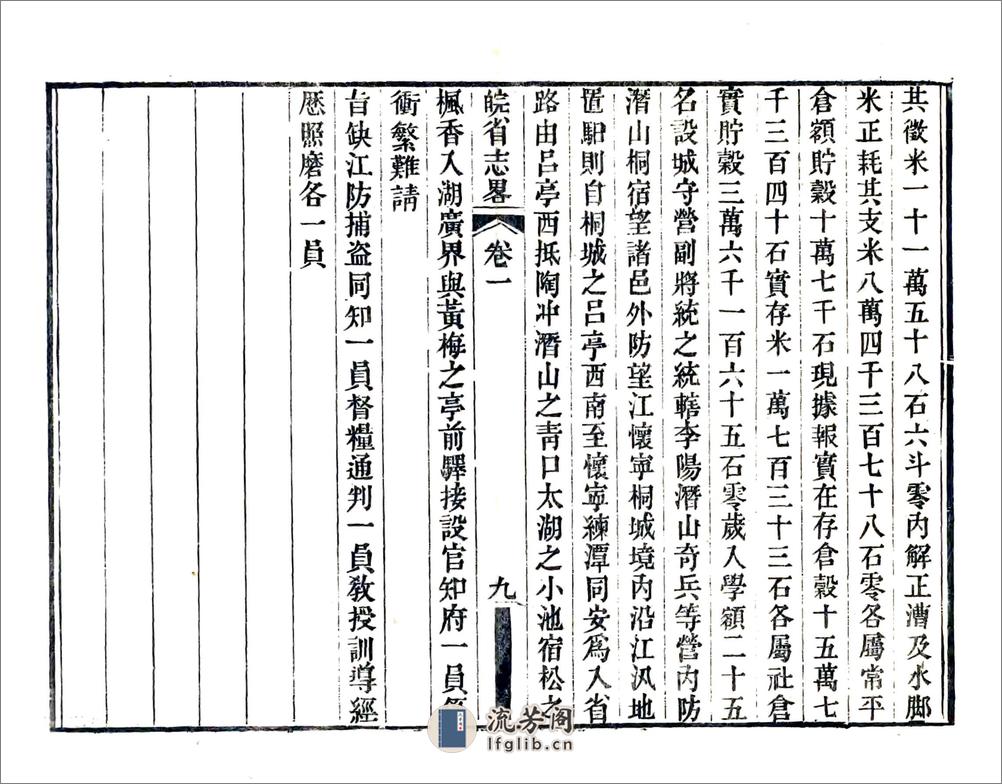 其徵米一十一萬五十八石六斗零內解正漕及水脚
米正耗共支米八萬四千三百七十八石零各屬常平
倉額貯穀十萬七千石現據報實在存倉穀十五萬七
千三百四十石實存米一萬七百三十三石各屬社倉
實貯穀三萬六千一百六十五石零歲入學額二十五
名設城守營副將統之統轄李陽潛山奇兵等營內防
潛山桐宿望諸邑外防望江懷寧桐城境內沿江汛地
置馹則自桐城之呂亭西南至懷寧練潭同安爲入省
路由呂亭西抵陶冲潛山之靑口太湖之小池宿松之
皖省志畧 卷一 九
楓香入湖廣界與黃梅之亭前驛接設官知府一員
衝繁難請
旨缺江防捕盜同知一員督糧通判一員教授訓導經
歷照磨各一員
流芳阁
lfglib.cn